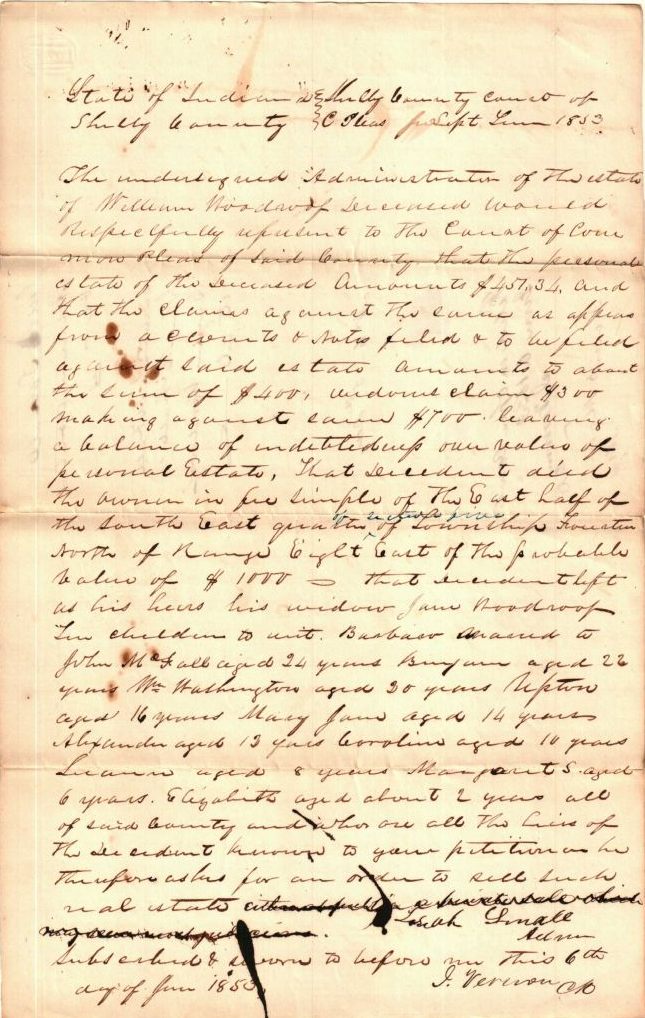 State of Indiana } Shelby County court of
Shelby County } C Pleas Sept Term 1853
The undersigned Administrator of the estate
of William Woodroof Deceased would
Respectfully represent to the Court of Com
mon Pleas of said County that the personal
estate of the Deceased Amounts $457,34, and
that the claims against the same as appears
from accounts & Notes filed & to be filed
against said estate amounts to about
the sum of $400, widows claim $300
making against same $700. leaving
a balance of indebtedness over value of
personal Estate, That Decedent died
the owner in fee simple of the East half of
of section
the South East quarter of Township Fourteen
North of Range Eight East of the probable
value of $1000 — that Decedent left
as his heirs his widow Jane Woodroof
Ten children to wit. married to
John aged 24 years aged 22
years Wm Washington aged 20 years Upton
aged 16 years Mary Jane aged 14 years
Alexander aged 13 years Caroline aged 10 years
aged 8 years Margaret S. aged
6 years. Elizabeth aged about 2 years all
of said County and who are all the heirs of
the Decedent known to your petitioner he
therefore asks for an order to sell such
real estate
Small
Admr
Subscribed & sworn to before me this 6th
day of 1853
J. Vernon